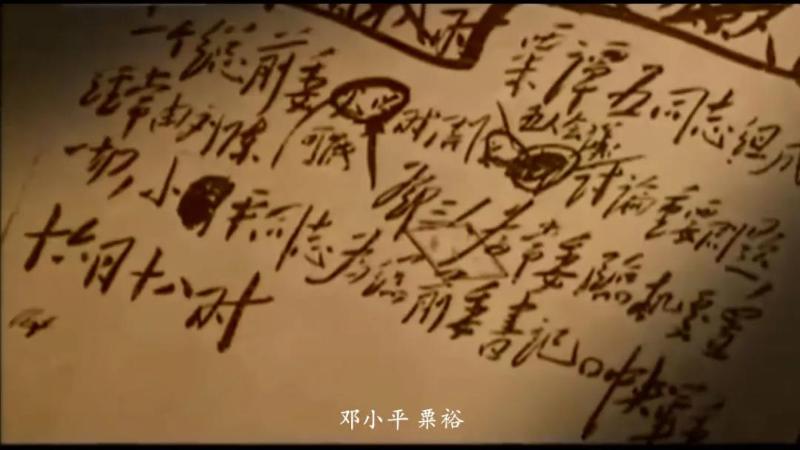 粟谭五同志组成
一个总前委 可能时开五人会议讨论重要问题,
经常由刘陈邓三人为常委临机处置
一切,小平同志为总前委书记。中央军委
十六日十八时
邓小平 粟裕